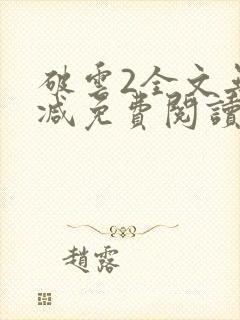 破雲2全文無
減免費閱讀
趙露